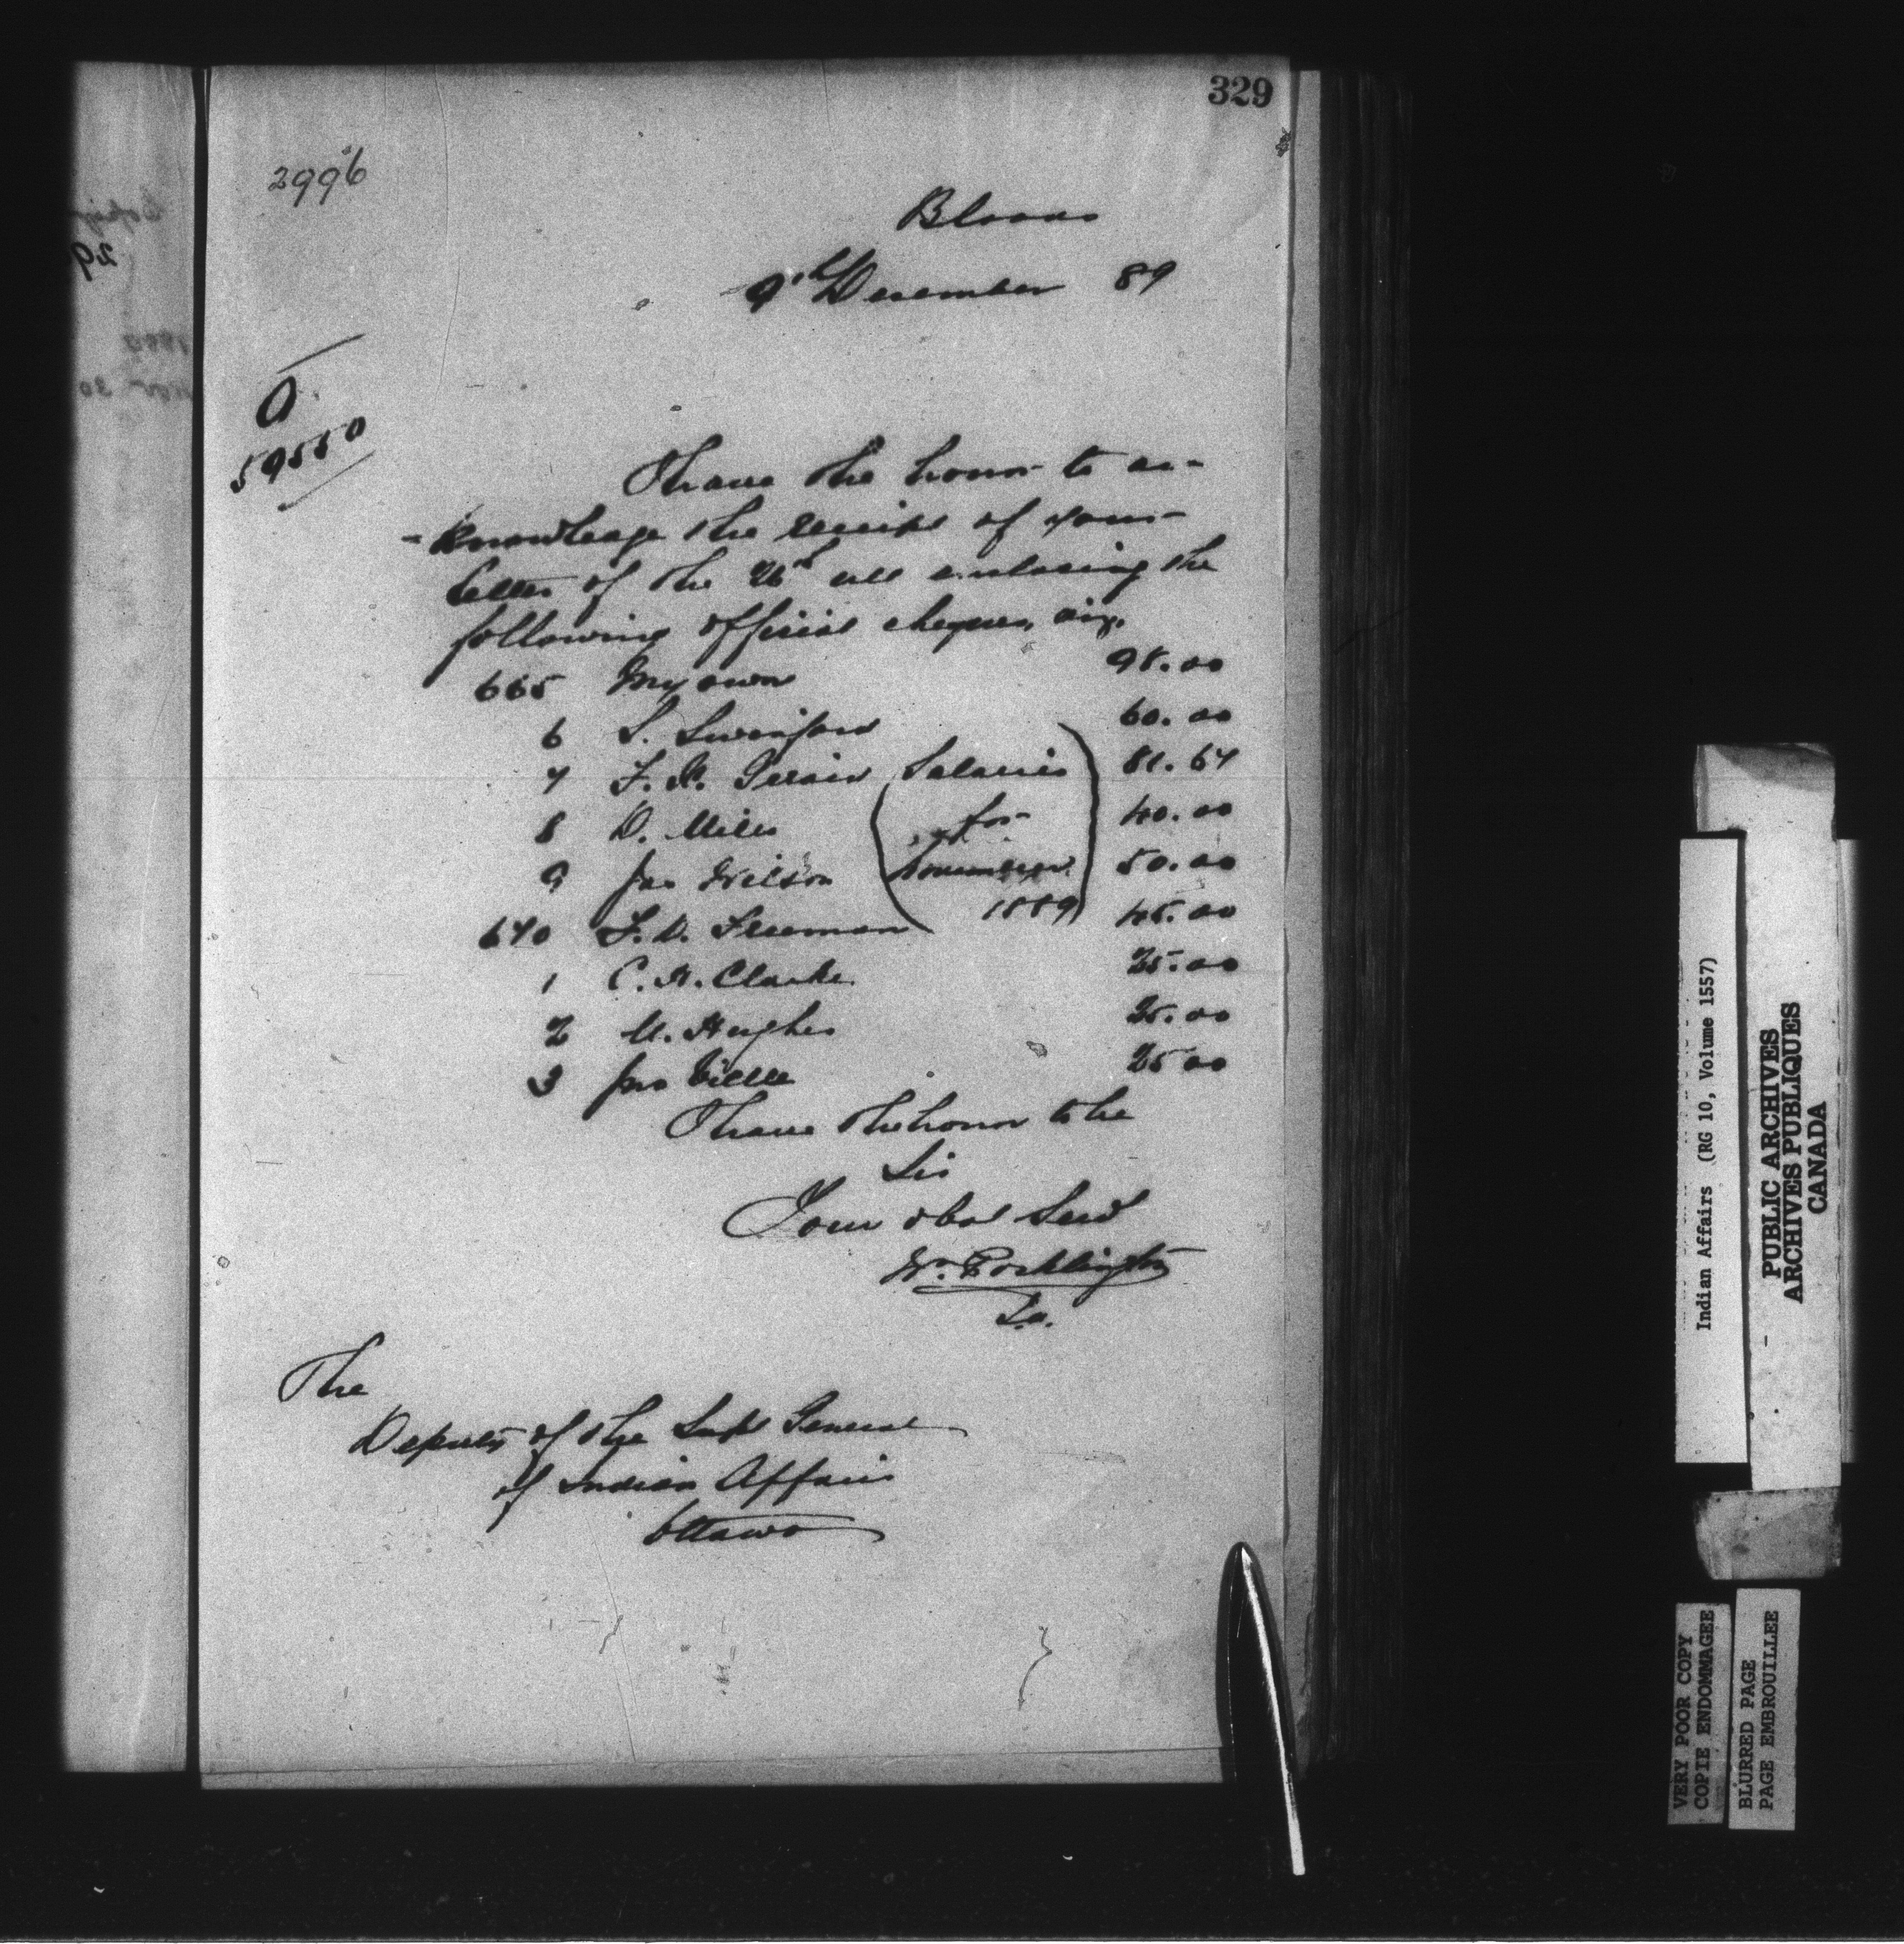 329
2996
Bloods
9th December 89
A
59550
I have the honor to ac-
-knowledge the receipt of your
letter of the 26th ult enclosing the
following official cheques, viz.
665 My own 98.00
6 S. Swinford 60.00
7 F. X. Girard Salaries 81.67
8 D. Mills for 40.00
9 Jas Wilson November 50.00
670 F. D. Freeman 1889 45.00
1 C. H. Clarke 25.00
2 M. Hughes 25.00
3 Jno 25 00
I have the honor to be
Sir
Your obdt Servt
Wm. Pocklington
I.A.
The
Deputy of the Supt General
of Indian Affairs
Ottawa
Indian Affairs (RG 10, Volume 1557)
PUBLIC ARCHIVES
ARCHIVES PUBLIQUES
CANADA
VERY POOR COPY
COPIE ENDOMMAGEE
BLURRED PAGE
PAGE EMBROUILLEE